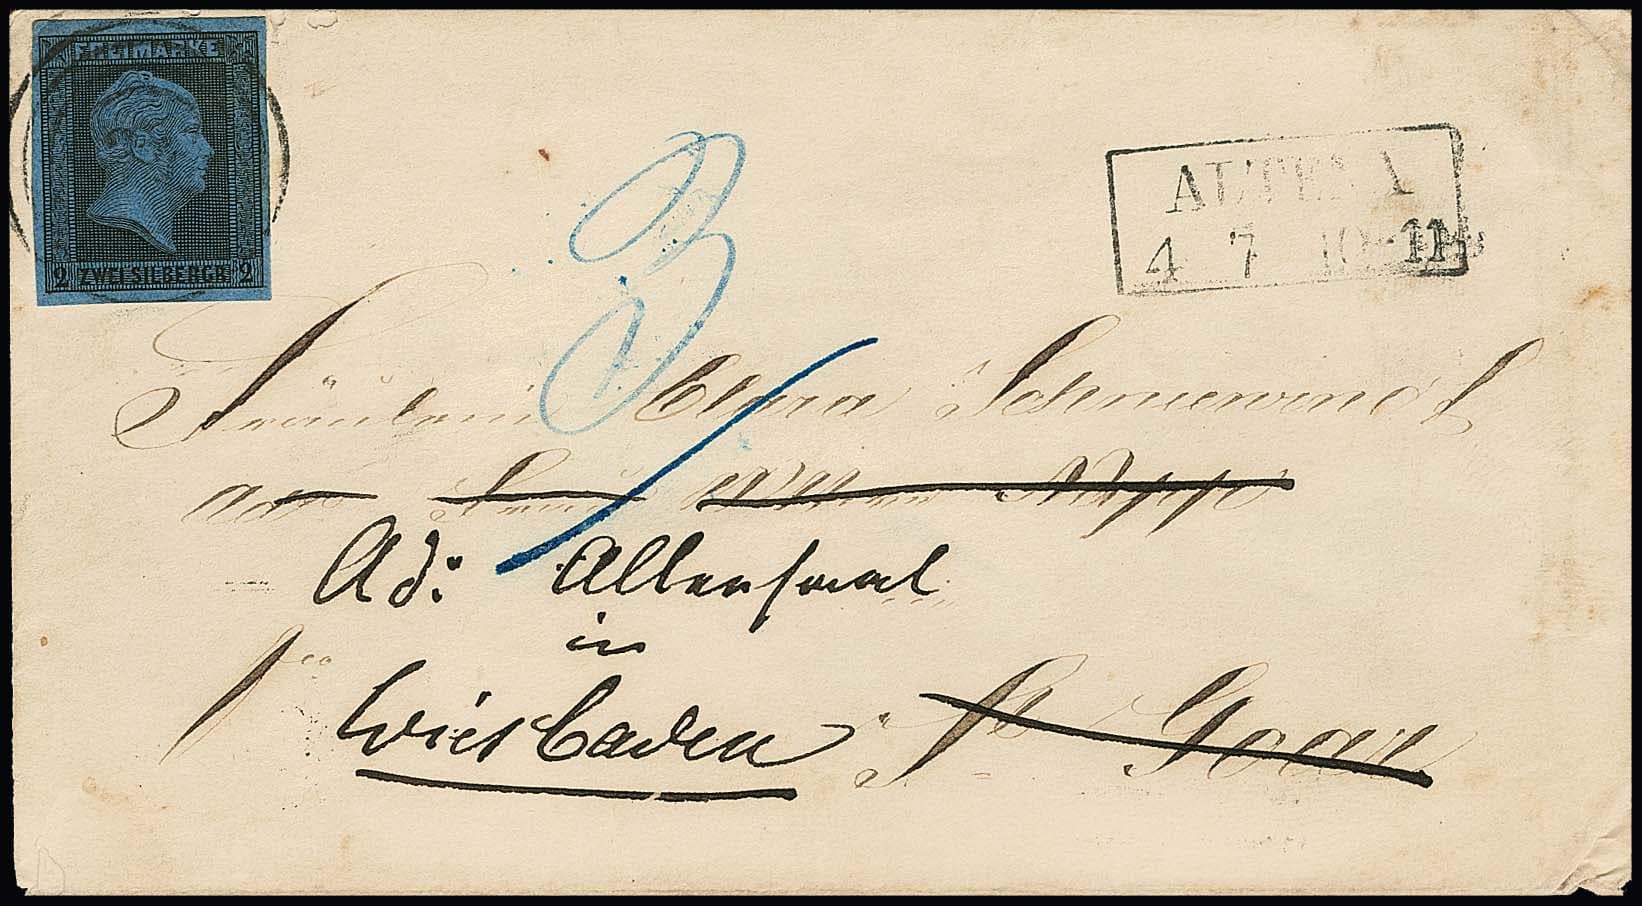 FREIMARKE
2 ZWEI SILBERGR 2
ALTENA
4 7 10-11
3
Fräulein Clara Schniewind
Ad: Allensaal
in
Wiesbaden
St Goar